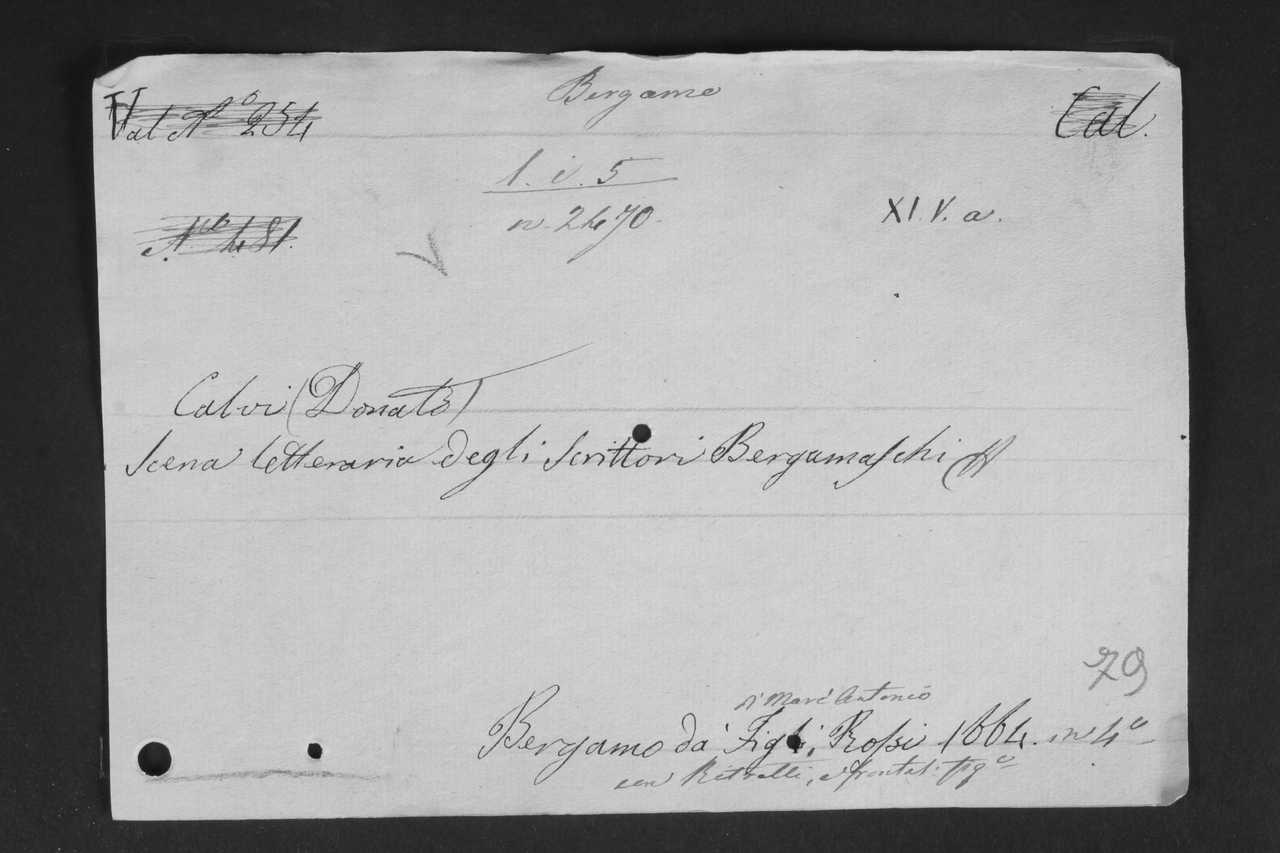 Bergame
Val N.º 254
Cal.
1. i. 5
n. 2470.
XI. V. a.
N.º 481.
Calvi (Donato)
Scena letteraria degli Scrittori Bergamaschi
79
di Marc'Antonio
Bergamo da' Figli, Rossi 1664. in 4º
con Ritratti, e frontesp: figº